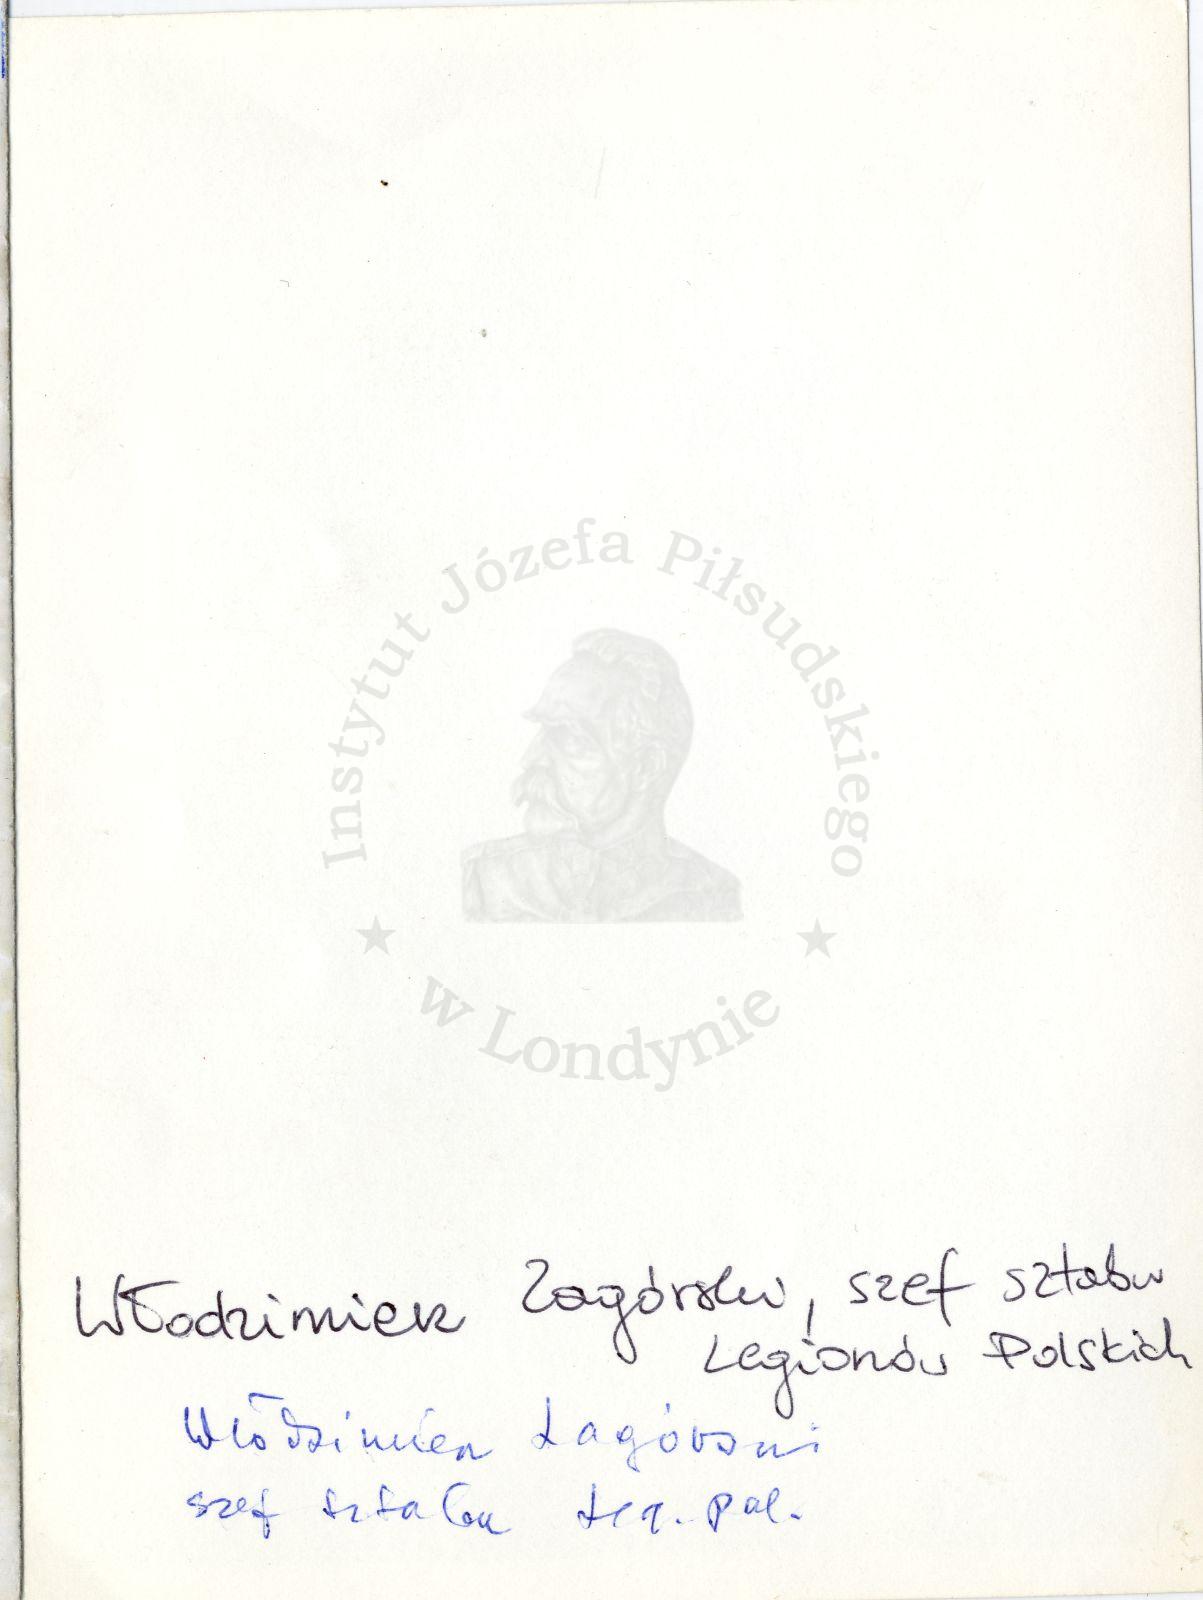 Instytut Józefa Piłsudskiego
w Londynie
Włodzimierz Zagórski, szef sztabu
Legionów Polskich
Włodzimierz Zagórski
szef sztabu Leg. Pol.